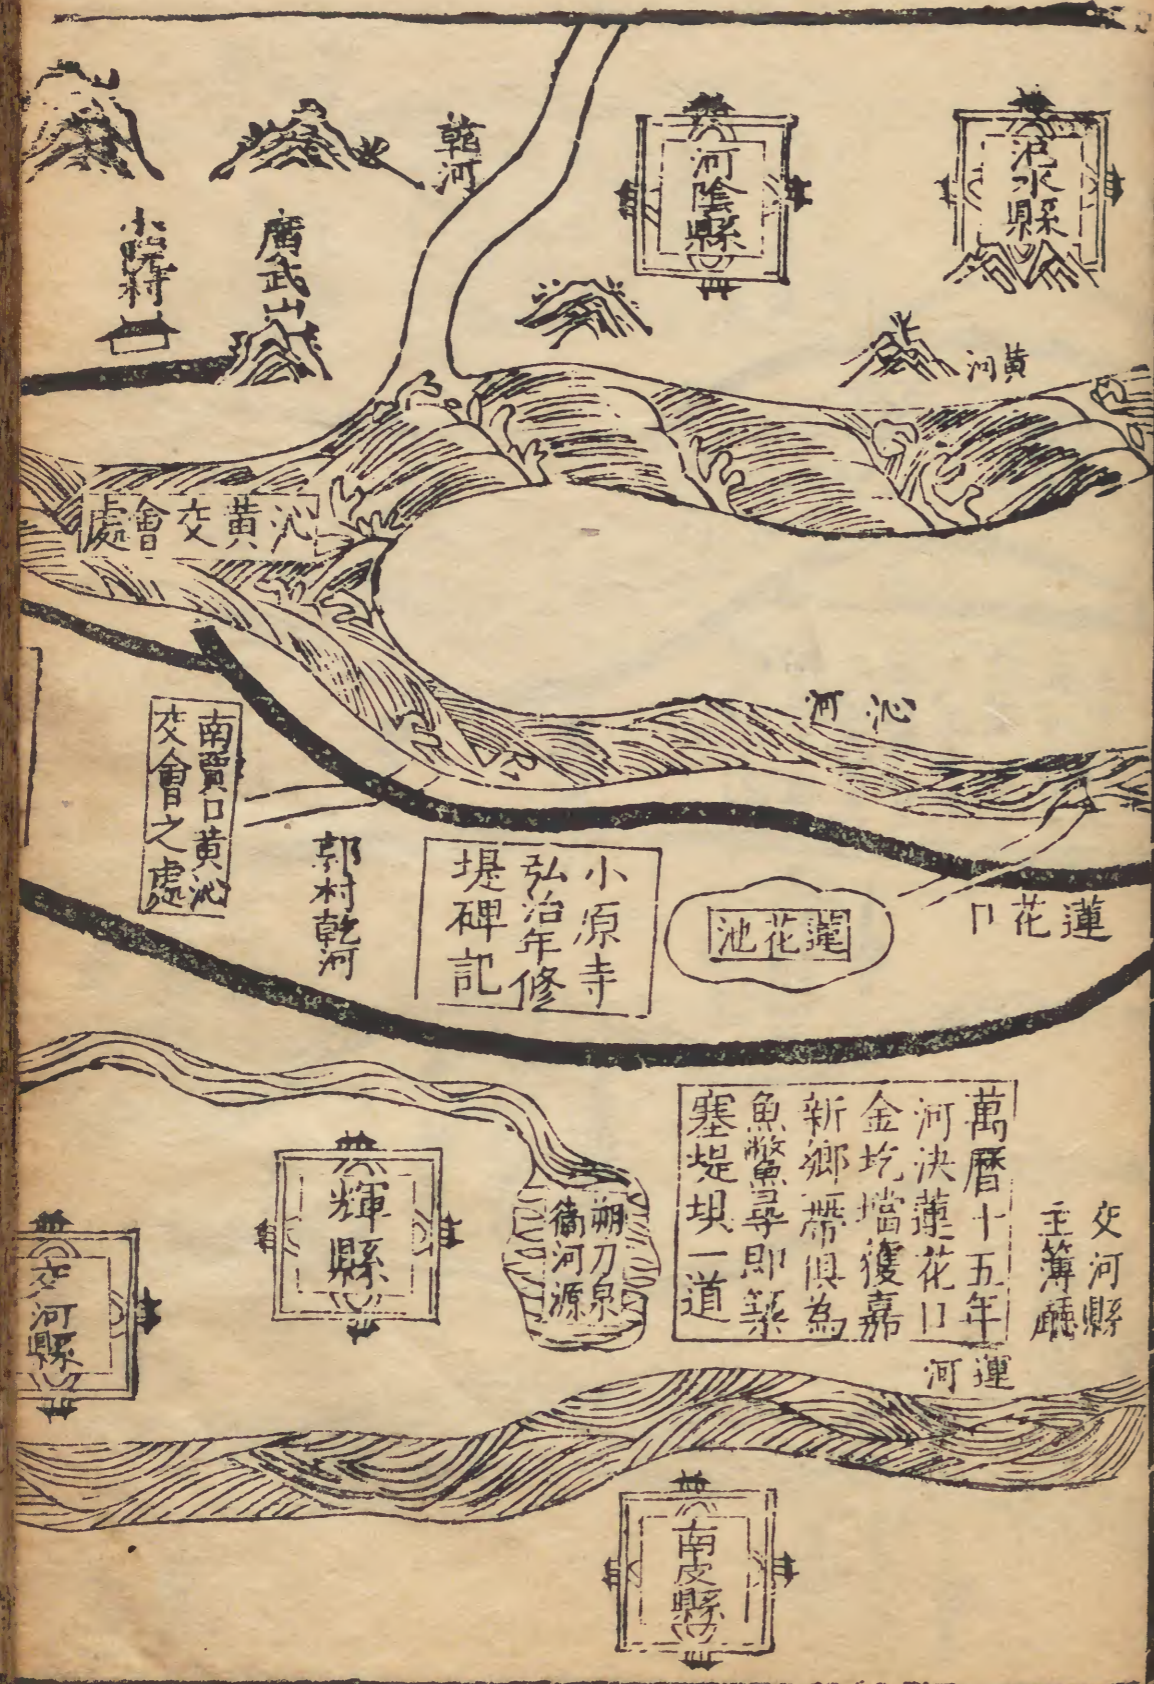 汜水縣
河陰縣
乾河
廣武山
黃河
沁黃交會處
沁河
南賈口黃沁
交會之處
郭村乾河
小原寺
弘治年修
堤碑記
蓮花池
蓮花口
萬曆十五年
河決蓮花口
金圪壋獲嘉
新鄉帶俱為
魚鱉尋即築
塞堤埧一道
交河縣
主簿廳
運河
朔刀泉
衛河源
輝縣
交河縣
南皮縣